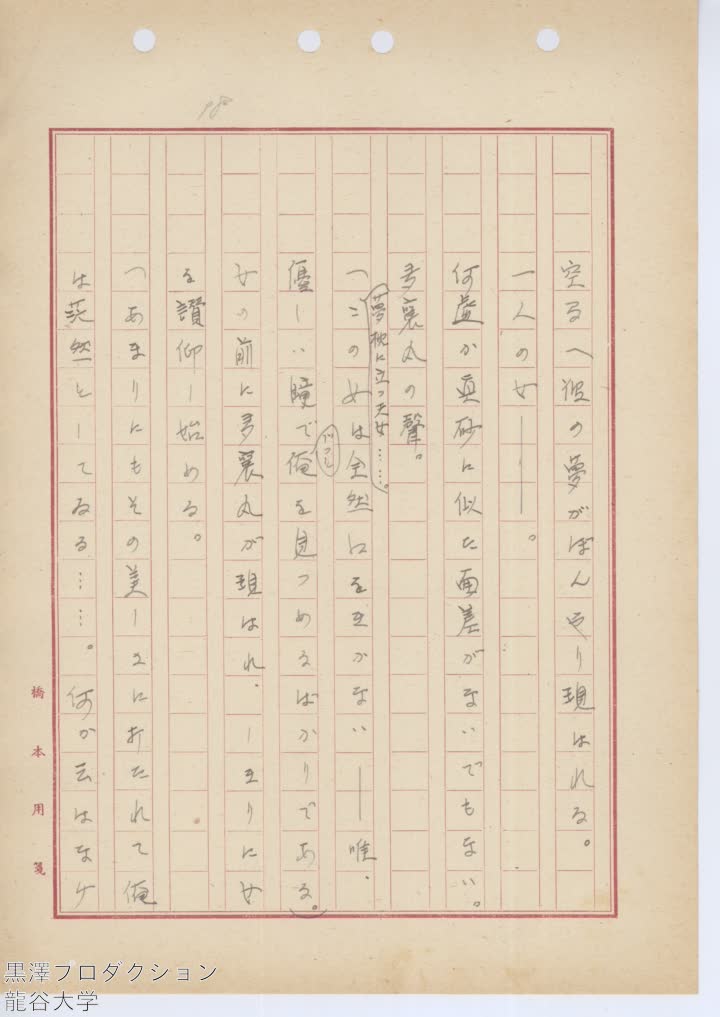 18
空るへ彼の夢がぼんやり現はれる。
一人の女———。
何處か真砂に似た面差がないでもない。
多襄丸の聲。
夢枕に立つ天女……。
「この女は全然口をきかない——唯、
ドラム
優しい瞳で俺を見つめるばかりである。
女の前に多襄丸が現はれ、しきりに女
を讃仰し始める。
「あまりにもその美しさに打たれて俺
は茫然としてゐる……。何か云はなけ
橋本用箋
黒澤プロダクション
龍谷大学